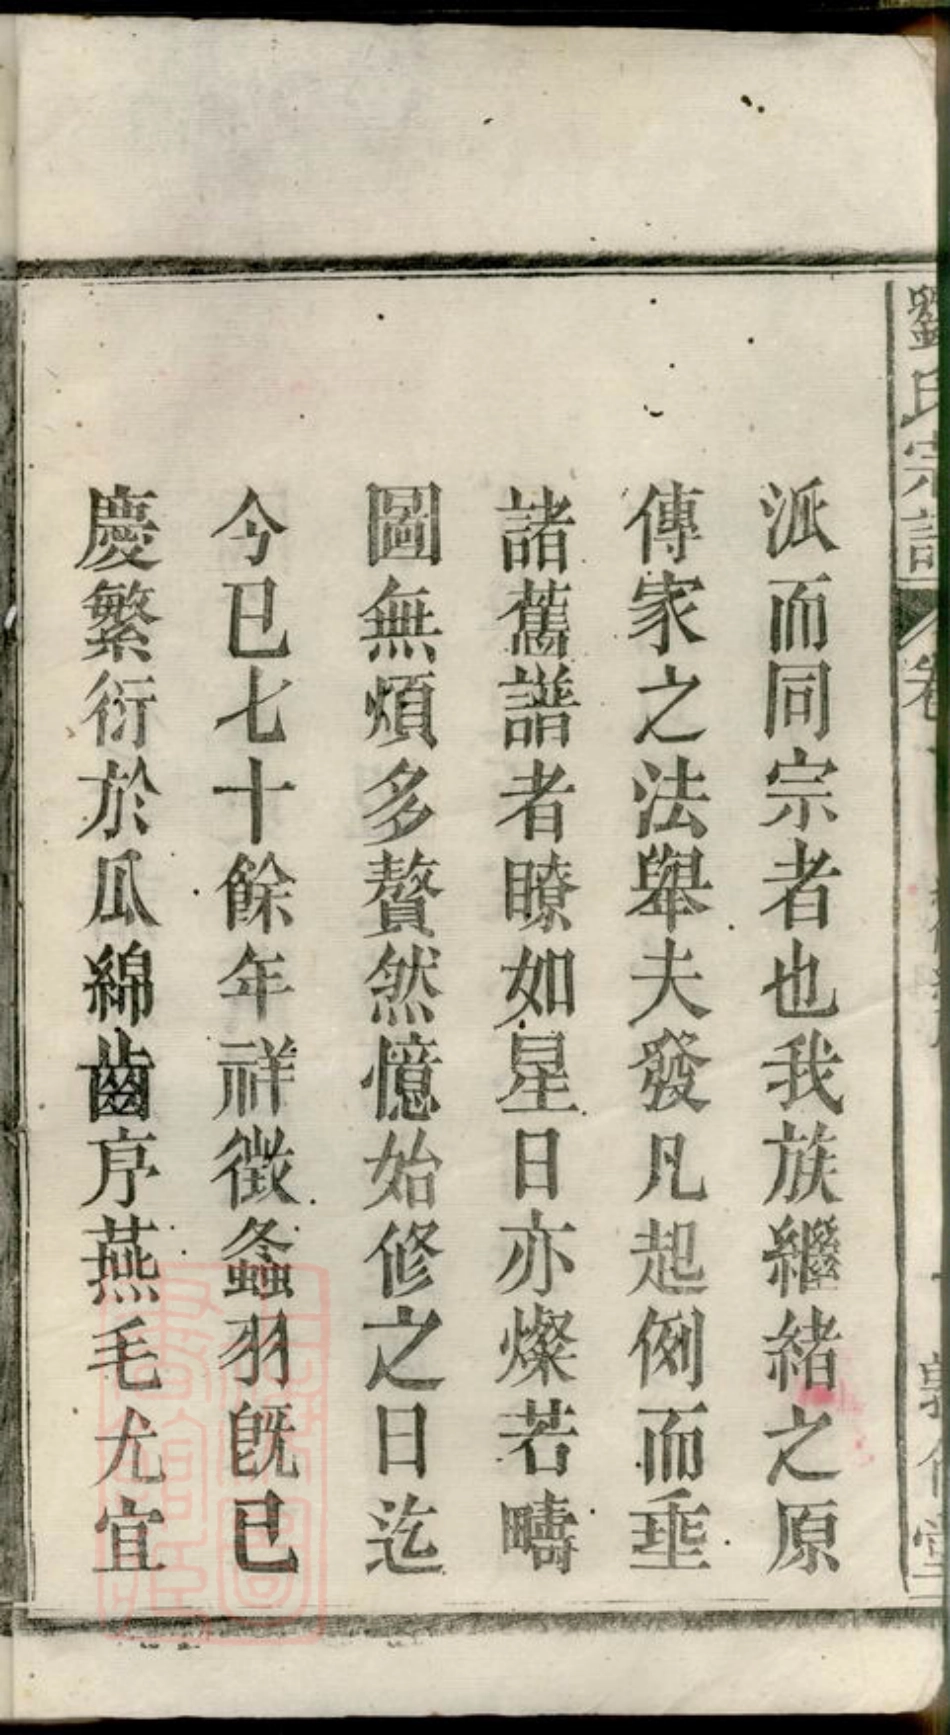 劉氏宗譜 卷
派而同宗者也我族繼緒之原
傳家之法舉夫發凡起例而垂
諸舊譜者瞭如星日亦燦若疇
圖無煩多贅然憶始修之日迄
今已七十餘年祥徵螽羽旣已
慶繁衍於瓜綿齒序燕毛尤宜